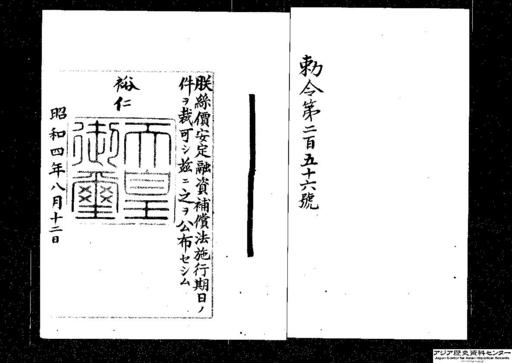 勅令第二百五十六號
朕絲價安定融資補償法施行期日ノ
件ヲ裁可シ玆ニ之ヲ公布セシム
裕仁
天皇
御璽
昭和四年八月十二日
アジア歴史資料センター
Japan Center for Asian Historical Records